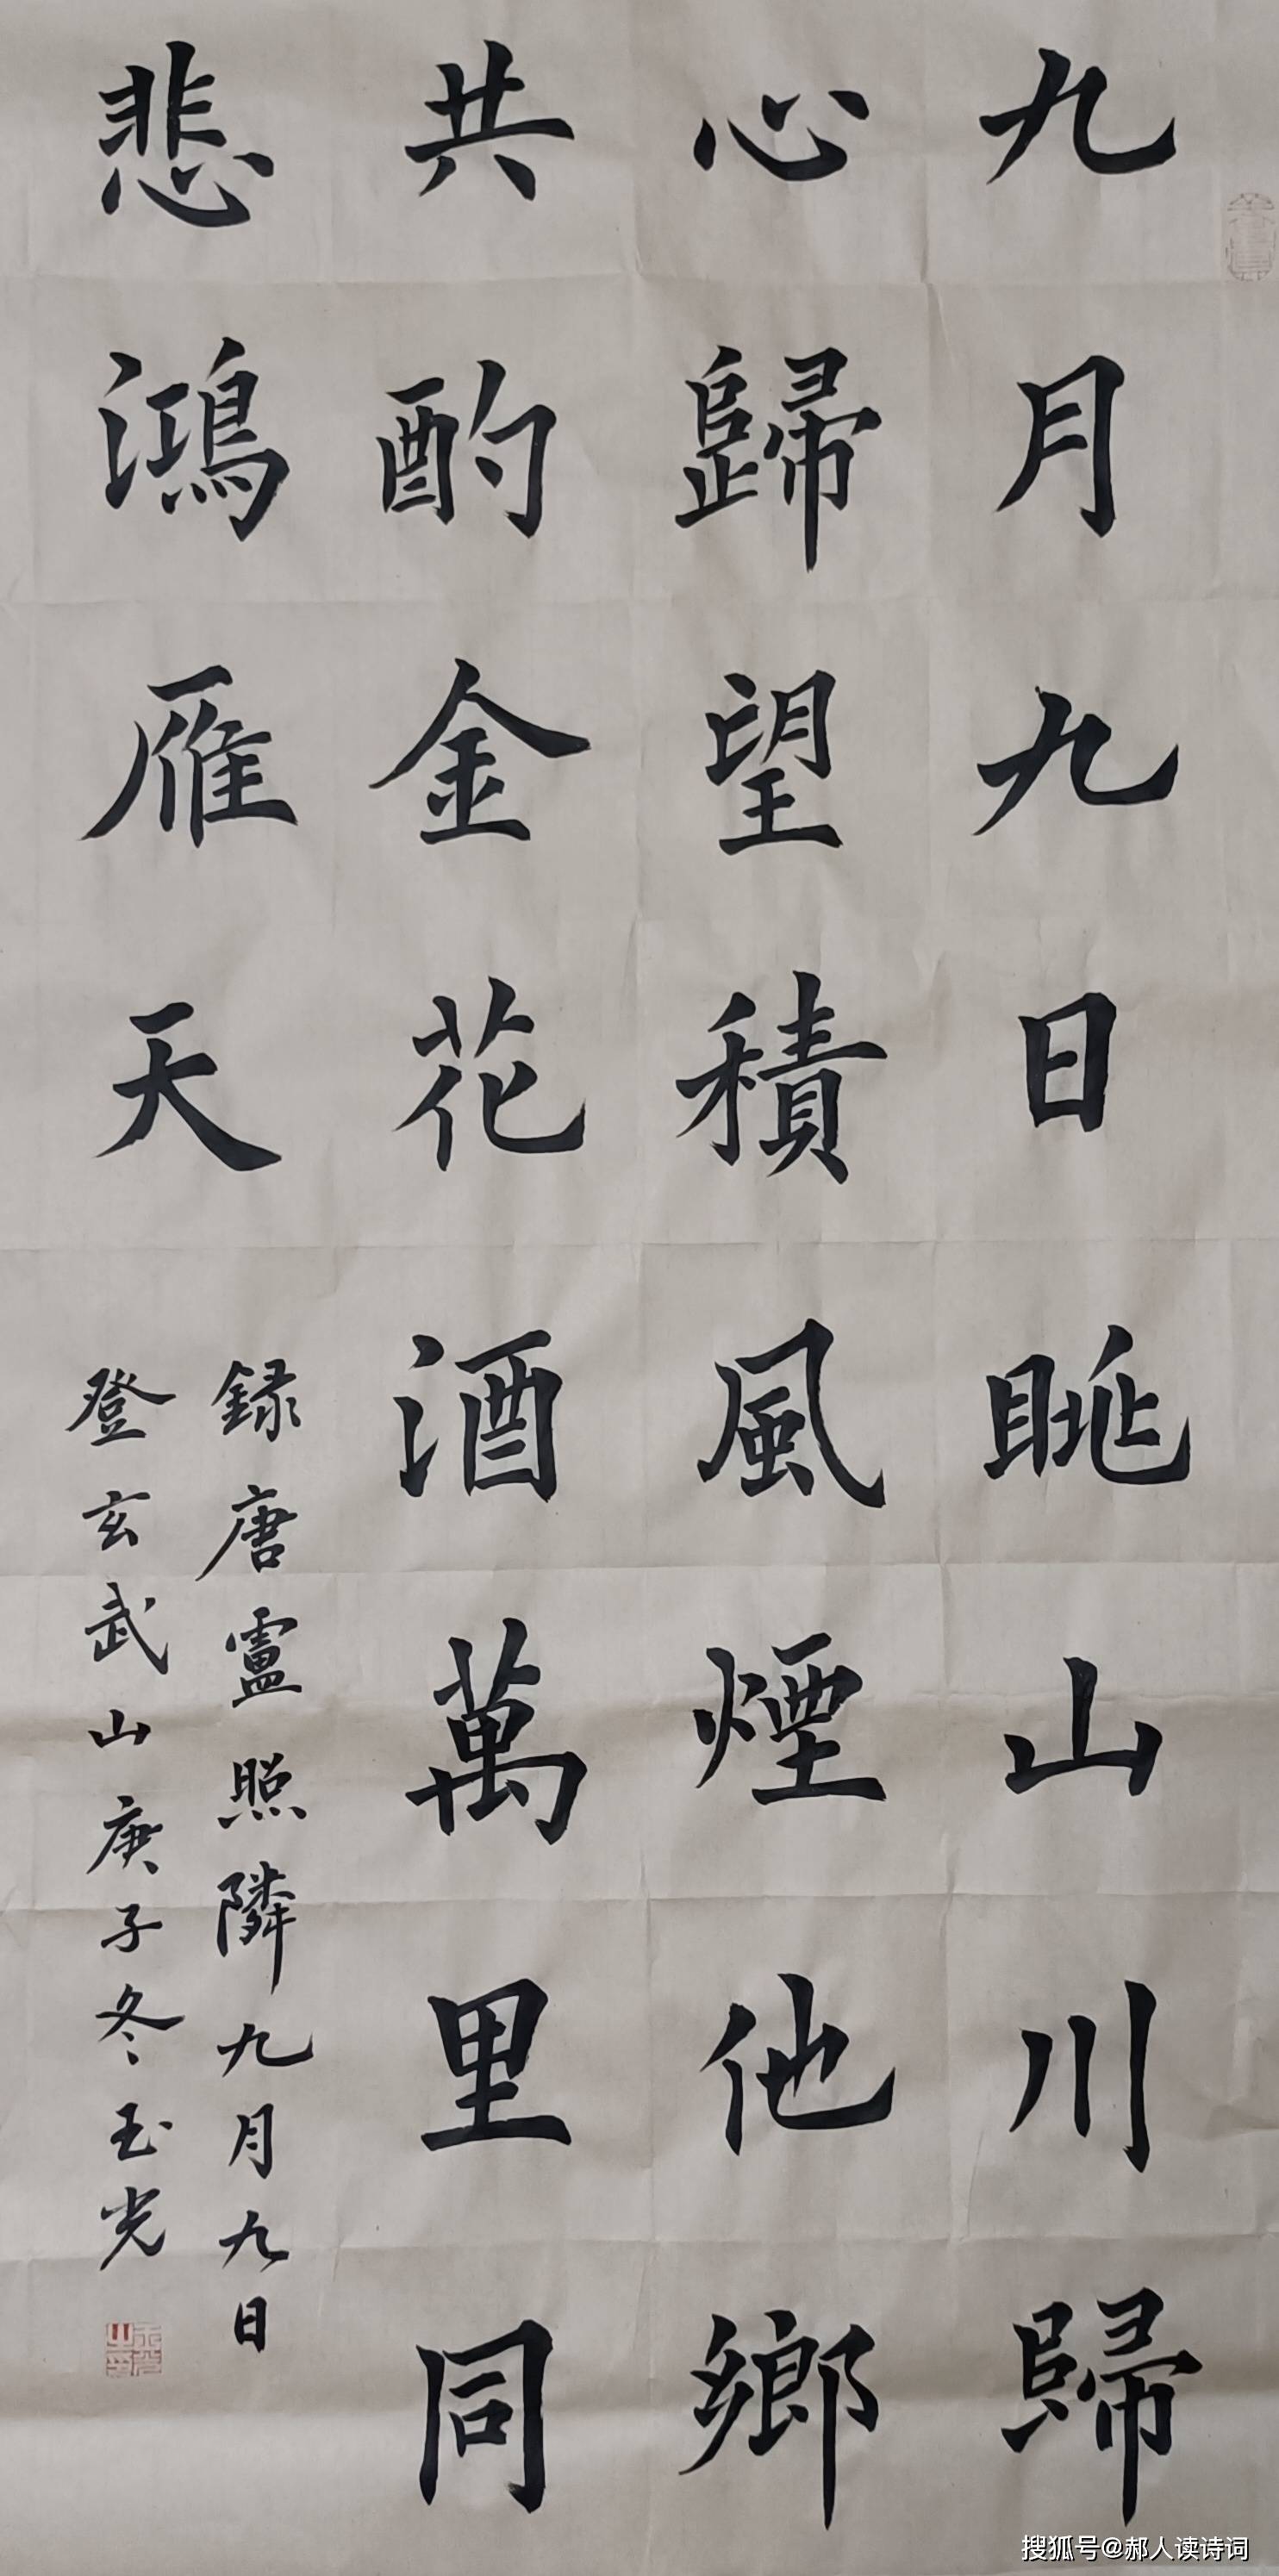 九月九日眺山川歸
心歸望積風煙他鄉
共酌金花酒萬里同
悲鴻雁天
録唐盧照隣九月九日
登玄武山庚子冬玉光
搜狐号@郝人读诗词